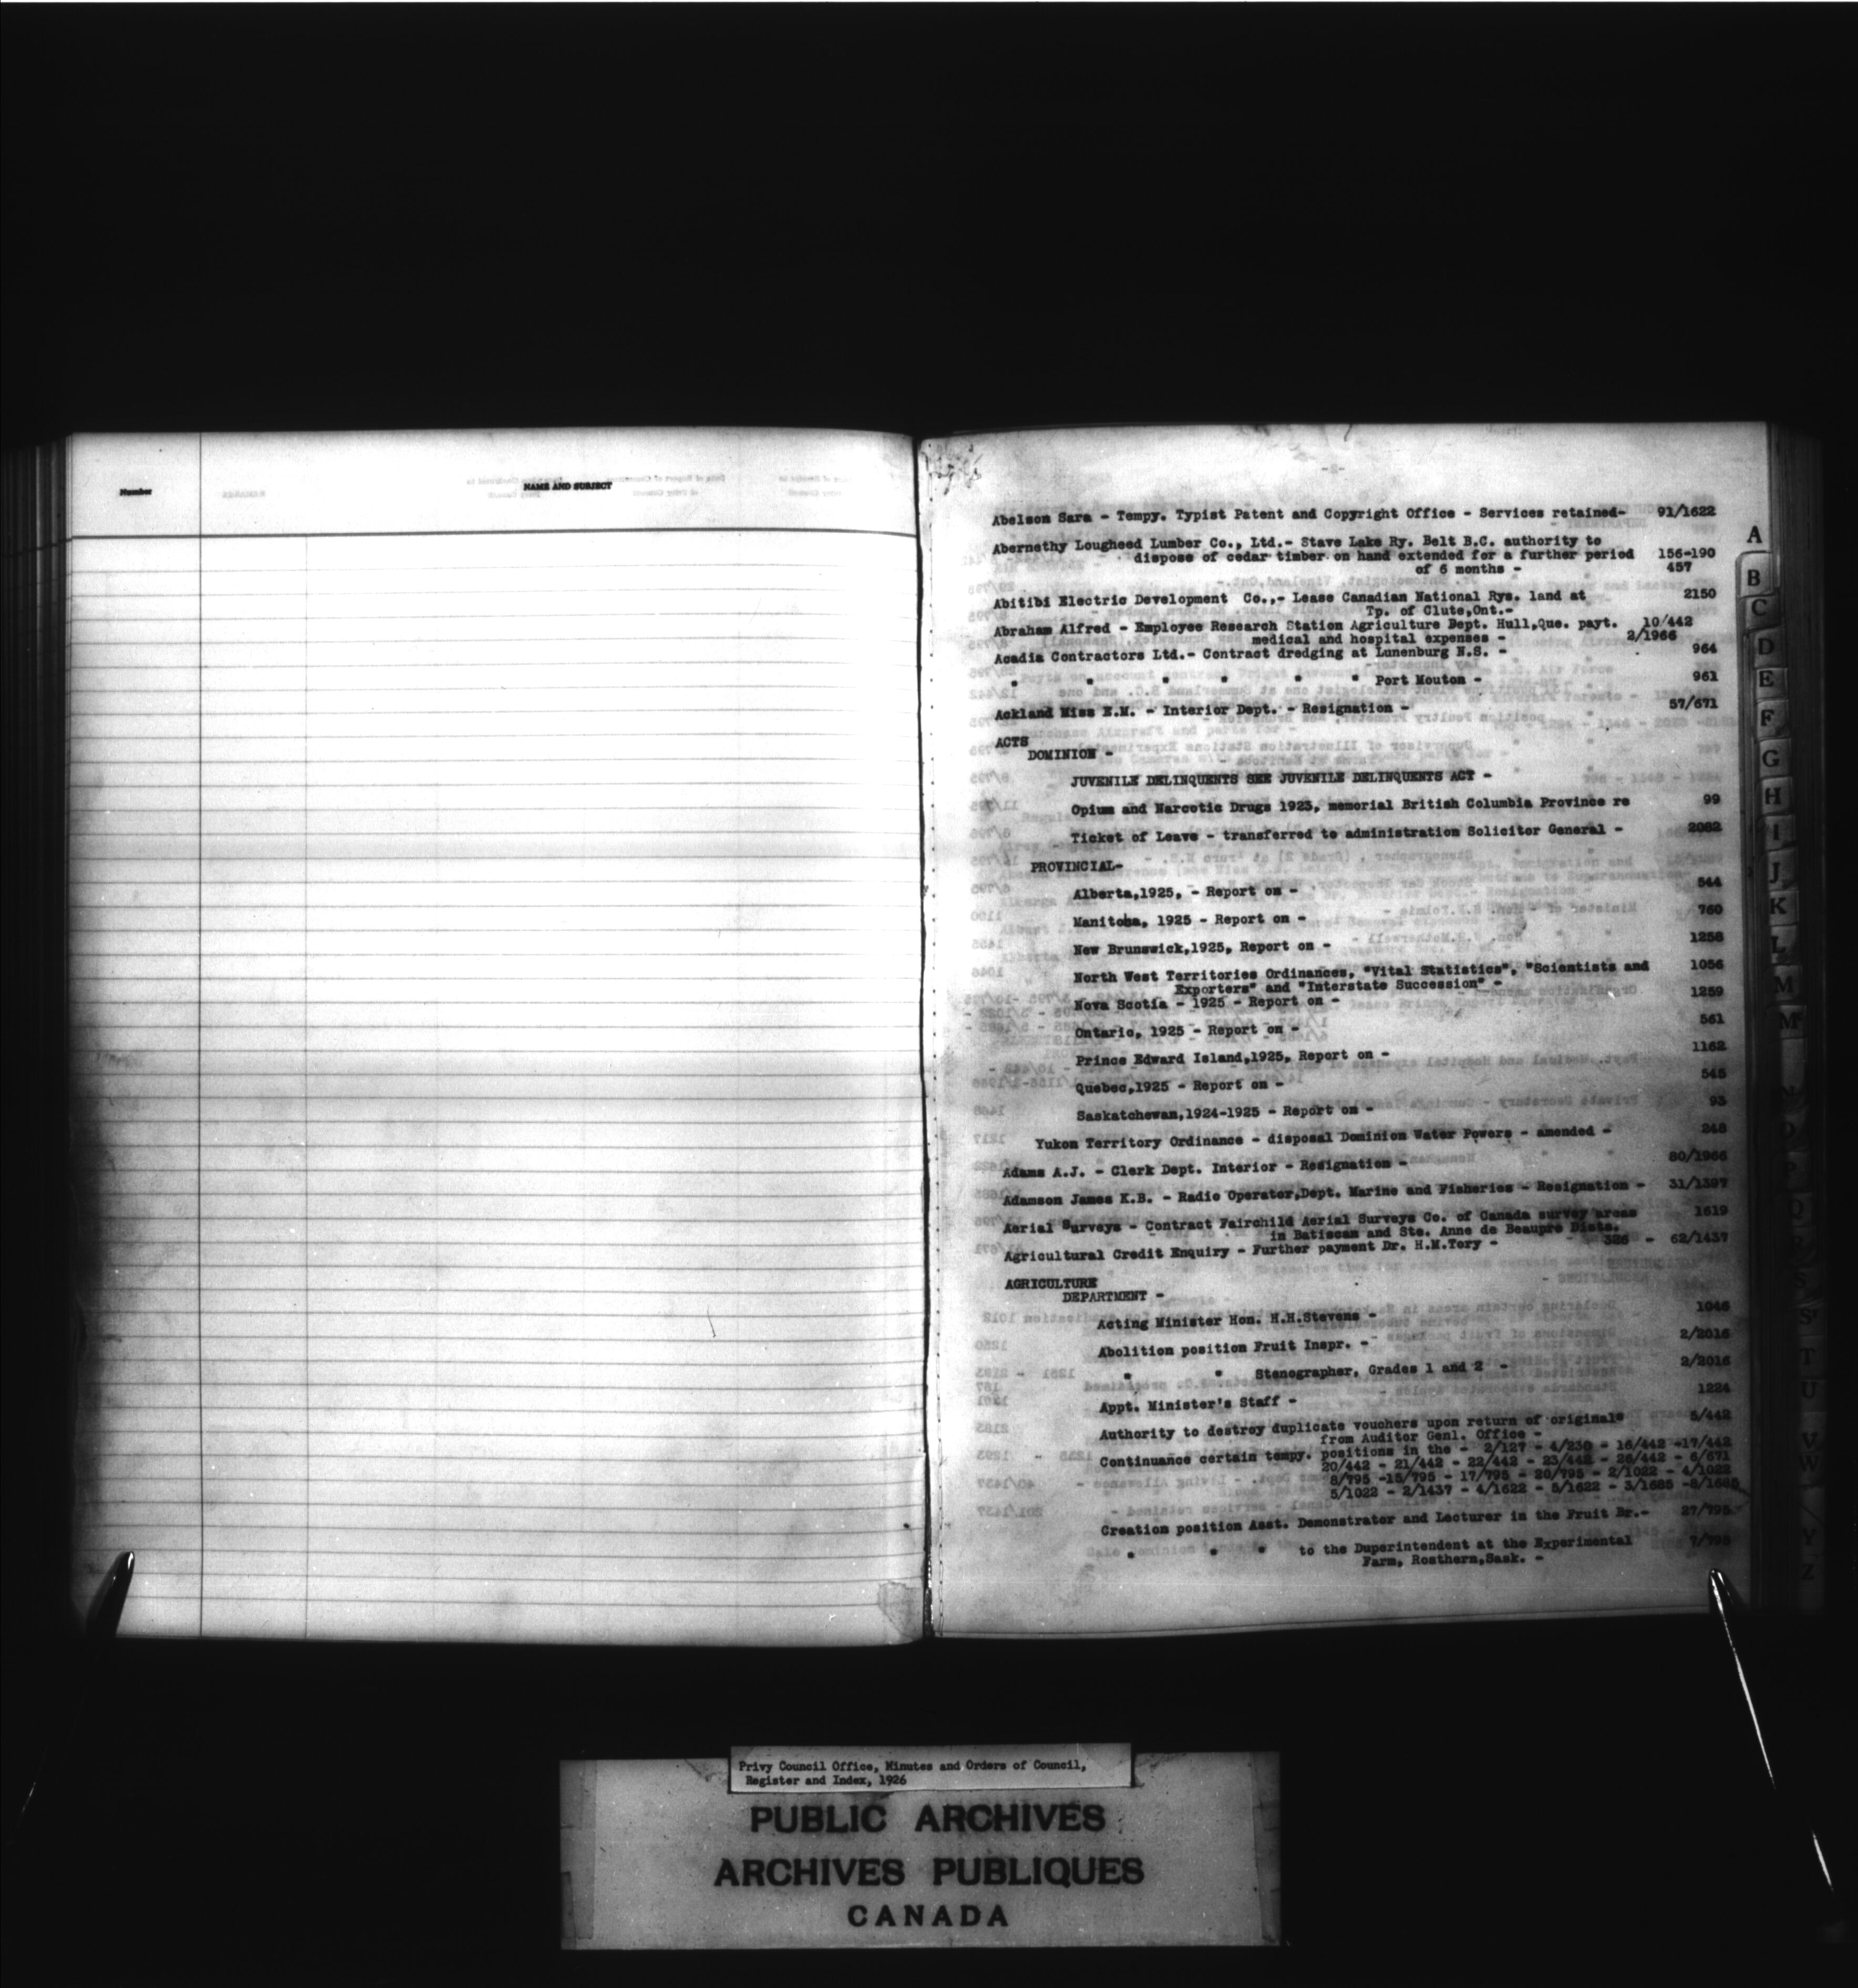 Number
NAME AND SUBJECT
Abelson Sara - Tempy. Typist Patent and Copyright Office - Services retained- 91/1622
Abernethy Lougheed Lumber Co., Ltd.- Stave Lake Ry. Belt B.C. authority to
dispose of cedar timber on hand extended for a further period 156-190
of 6 months - 457
Abitibi Electric Development Co.,- Lease Canadian National Rys. land at 2150
Tp. of Clute,Ont.-
Abraham Alfred - Employee Research Station Agriculture Dept. Hull,Que. payt. 10/442
medical and hospital expenses - 2/1966
Acadia Contractors Ltd.- Contract dredging at Lunenburg N.S. - 964
" " " " " " Port Mouton - 961
Ackland Miss E.M. - Interior Dept. - Resignation - 57/671
ACTS
DOMINION -
JUVENILE DELINQUENTS SEE JUVENILE DELINQUENTS ACT -
Opium and Narcotic Drugs 1923, memorial British Columbia Province re 99
Ticket of Leave - transferred to administration Solicitor General - 2082
PROVINCIAL-
Alberta,1925, - Report on - 544
Manitoba, 1925 - Report on - 760
New Brunswick,1925, Report on - 1258
North West Territories Ordinances, "Vital Statistics", "Scientists and 1056
Exporters" and "Interstate Succession" -
Nova Scotia - 1925 - Report on - 1259
Ontario, 1925 - Report on - 561
Prince Edward Island,1925, Report on - 1162
Quebec,1925 - Report on - 545
Saskatchewan,1924-1925 - Report on - 93
Yukon Territory Ordinance - disposal Dominion Water Powers - amended - 248
Adams A.J. - Clerk Dept. Interior - Resignation - 80/1966
Adamson James K.B. - Radio Operator,Dept. Marine and Fisheries - Resignation - 31/1397
Aerial Surveys - Contract Fairchild Aerial Surveys Co. of Canada survey areas 1619
in Batiscan and Ste. Anne de Beaupre Dists.
Agricultural Credit Enquiry - Further payment Dr. H.M.Tory - 326 - 62/1437
AGRICULTURE
DEPARTMENT -
Acting Minister Hon. H.H.Stevens - 1046
Abolition position Fruit Inspr. - 2/2016
" " Stenographer, Grades 1 and 2 - 2/2016
Appt. Minister's Staff - 1224
Authority to destroy duplicate vouchers upon return of originals 5/442
from Auditor Genl. Office -
Continuance certain tempy. positions in the - 2/127 - 4/230 - 16/442 -17/442
20/442 - 21/442 - 22/442 - 23/442 - 26/442 - 6/671
8/795 -15/795 - 17/795 - 20/795 - 2/1022 - 4/1022
5/1022 - 2/1437 - 4/1622 - 5/1622 - 3/1685 -8/1685
Creation position Asst. Demonstrator and Lecturer in the Fruit Br.- 27/795
" " " to the Duperintendent at the Experimental 7/795
Farm, Rosthern,Sask. -
A
B
C
D
E
F
G
H
I
J
K
L
M
M
P
Q
R
S
S
T
U
V
W
Y
Z
Privy Council Office, Minutes and Orders of Council,
Register and Index, 1926
PUBLIC ARCHIVES
ARCHIVES PUBLIQUES
CANADA